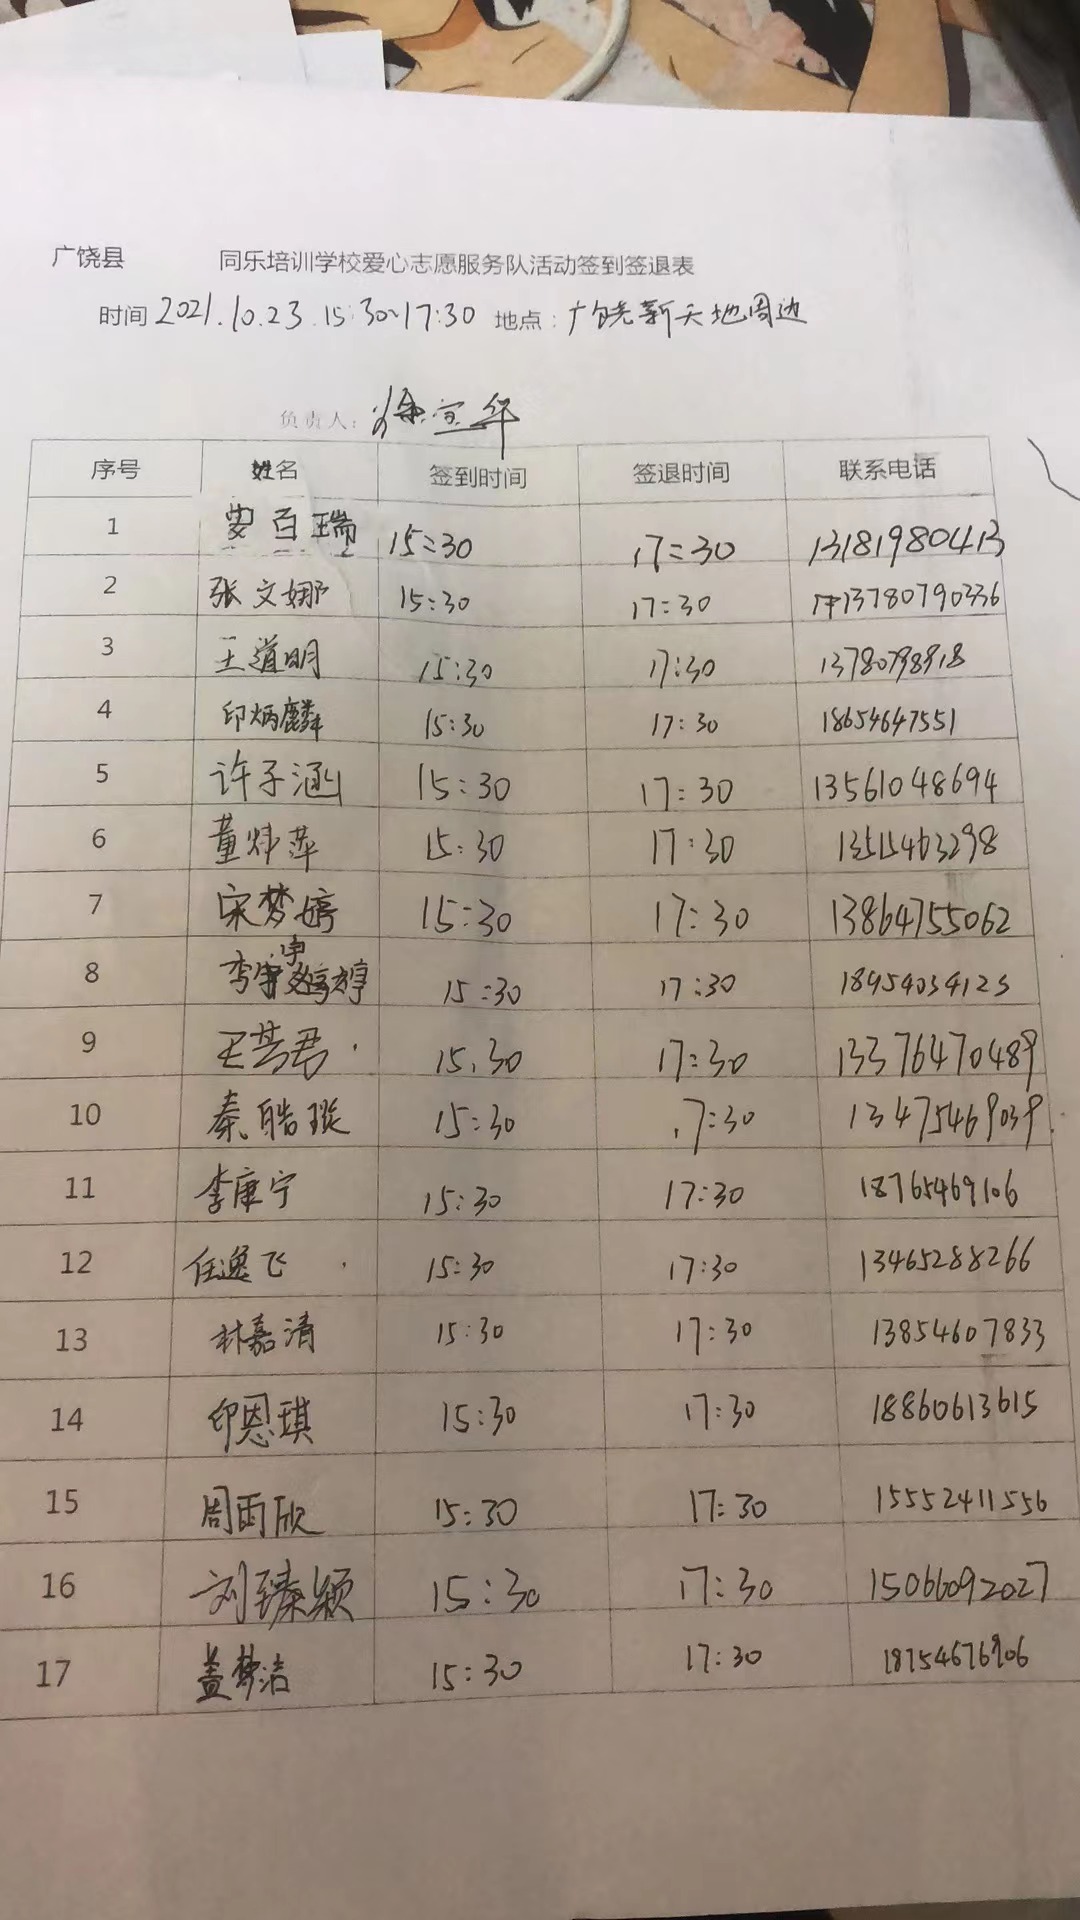 广饶县 同乐培训学校爱心志愿服务队活动签到签退表
时间 2021.10.23 15:30~17:30 地点：广饶新天地周边
负责人：徐宝华
序号 姓名 签到时间 签退时间 联系电话
1 百瑞 15:30 17:30 13181980413
2 张文娜 15:30 17:30 13780790336
3 王道明 15:30 17:30 13780798918
4 印炳麟 15:30 17:30 18654647551
5 许子涵 15:30 17:30 13561048694
6 董炜萍 15:30 17:30 13515463298
7 宋梦婷 15:30 17:30 13864755062
8 李 婷 15:30 17:30 18954034123
9 王芸君 15:30 17:30 13376470489
10 秦皓璇 15:30 17:30 13475469039
11 李康宁 15:30 17:30 18765469106
12 任逸飞 15:30 17:30 13465288266
13 林嘉清 15:30 17:30 13854607833
14 印恩琪 15:30 17:30 18860613615
15 周雨欣 15:30 17:30 15552411556
16 刘臻颖 15:30 17:30 15066092027
17 盖梦洁 15:30 17:30 18754676906